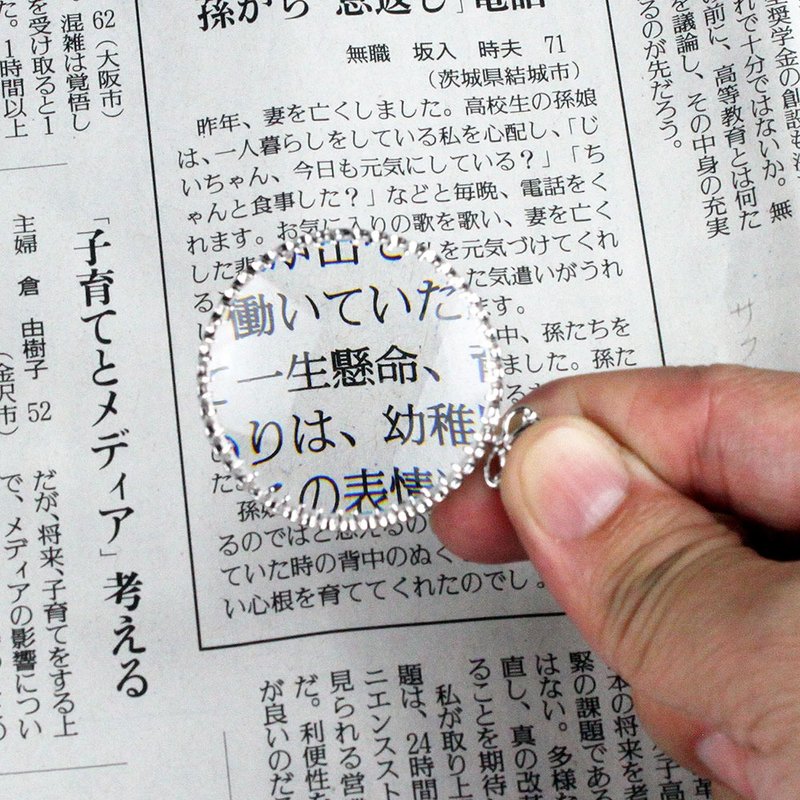 孫から「恩返し」電話
無職 坂入 時夫 71
(茨城県結城市)
昨年、妻を亡くしました。高校生の孫娘
は、一人暮らしをしている私を心配し、「じ
いちゃん、今日も元気にしている?」「ち
ゃんと食事した?」などと毎晩、電話をく
れます。お気に入りの歌を歌い、妻を亡く
した悲
を元気づけてくれ
る
た気遣いがうれ
ます。
中、孫たちを
ました。孫た
働いていた
一生懸命、
りは、幼稚
の表情
孫娘
るのではと思えるの
ていた時の背中のぬく
い心根を育ててくれたのでし
奨学金の創設も
れで十分ではないか。無
の前に、高等教育とは何た
を議論し、その中身の充実
るのが先だろう。
サク
62(大阪市)
混雑は覚悟し
を受け取ると1
た。1時間以上
「子育てとメディア」考える
主婦 倉 由樹子 52
(金沢市)
だが、将来、子育てをする上
で、メディアの影響につい
本の将来を考
緊の課題である
はない。多様な
直し、真の改革
ることを期待し
私が取り上
題は、24時間
ニエンススト
見られる営
だ。利便性を
が良いのだろ